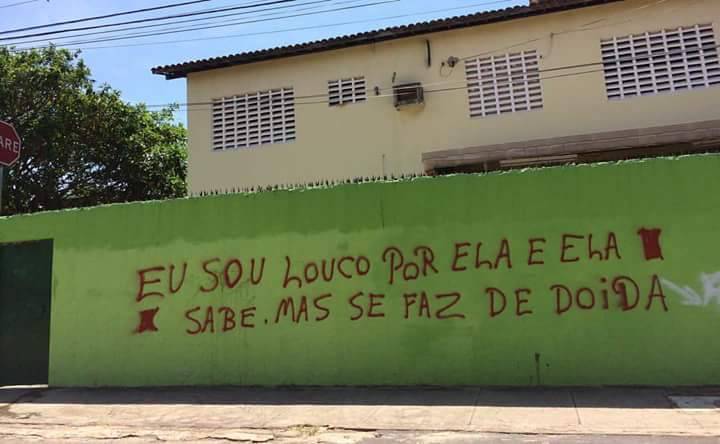 ARE
EU SOU LOUCO POR ELA E ELA
SABE. MAS SE FAZ DE DOiDA